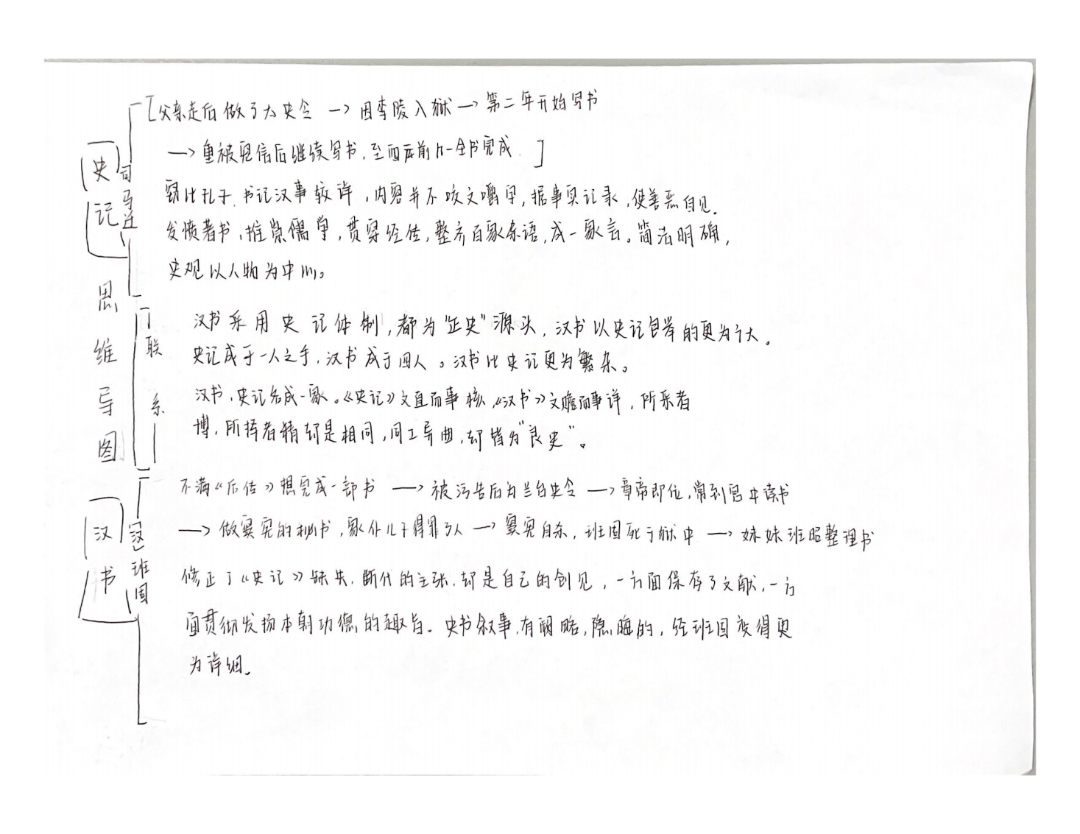 史记
思维导图
汉书
司马迁
[父亲走后做了太史令 → 因李陵入狱 → 第二年开始写书
→ 重被宠信后继续写书,至西元前 全书完成 ]
窃比孔子,书记汉事较详,内容并不咬文嚼字,据事实记录,使善恶自见。
发愤著书,推崇儒学,贯穿经传,整齐百家杂语,成一家言。简洁明确,
史观以人物为中心。
联系
汉书采用史记体制,都为"正史"源头,汉书以史记包举的更为广大。
史记成于一人之手,汉书成于四人。汉书比史记更为繁杂。
汉书,史记各成一家。《史记》文直而事核,《汉书》文赡而事详,所采者
博,所择者精却是相同,同工异曲,却皆为"良史"。
(汉)班固
不满《后传》想完成一部书 → 被污告后为兰台史令 → 章帝即位,常到宫中读书
→ 做窦宪的秘书,家外儿子得罪了人 → 窦宪自杀,班固死于狱中 → 妹妹班昭整理书
修正了《史记》缺失,断代的主张,却是自己的创见,一方面保存了文献,一方
面贯彻发扬本朝功德的趣旨。史书叙事,有阔略,隐晦的,经班固变得更
为详细。